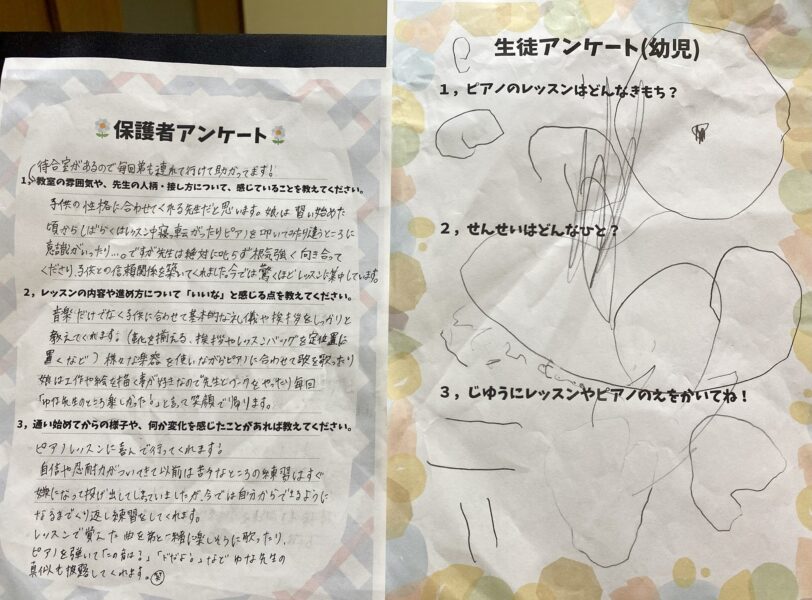 保護者アンケート
待合室があるので毎回弟も連れて行けて助かってます!
1, 教室の雰囲気や、先生の人柄・接し方について、感じていることを教えてください。
子供の性格に合わせてくれる先生だと思います。娘は習い始めた
頃からしばらくはレッスン中寝っ転がったりピアノを叩いてみたり違うところに
意識がいったり…。ですが先生は絶対に叱らず根気強く向き合って
くださり、子供との信頼関係を築いてくれました。今では驚くほどレッスンに集中しています。
2, レッスンの内容や進め方について「いいな」と感じる点を教えてください。
音楽だけでなく子供に合わせて基本的な礼儀や挨拶をしっかりと
教えてくれます。(靴を揃える、挨拶やレッスンバッグを定位置に
置くなど) 様々な楽器を使いながらピアノに合わせて歌を歌ったり
娘は工作や絵を描く事が好きなので先生とワークをやったり毎回
先生のところ楽しかった!」と言って笑顔で帰ります。
3, 通い始めてからの様子や、何か変化を感じたことがあれば教えてください。
ピアノレッスンに喜んで行ってくれます!
自信や忍耐力がついてきて以前は苦手なところの練習はすぐ
嫌になって投げ出してしまっていましたが、今では自分からできるように
なるまでくり返し練習をしてくれます。
レッスンで覚えた曲を弟と一緒に楽しそうに歌ったり、
ピアノを弾いて「この音は?」「ドだよ!」など ゆな先生の
真似も披露してくれます。
生徒アンケート(幼児)
1, ピアノのレッスンはどんなきもち?
2, せんせいはどんなひと?
3, じゆうにレッスンやピアノのえをかいてね!